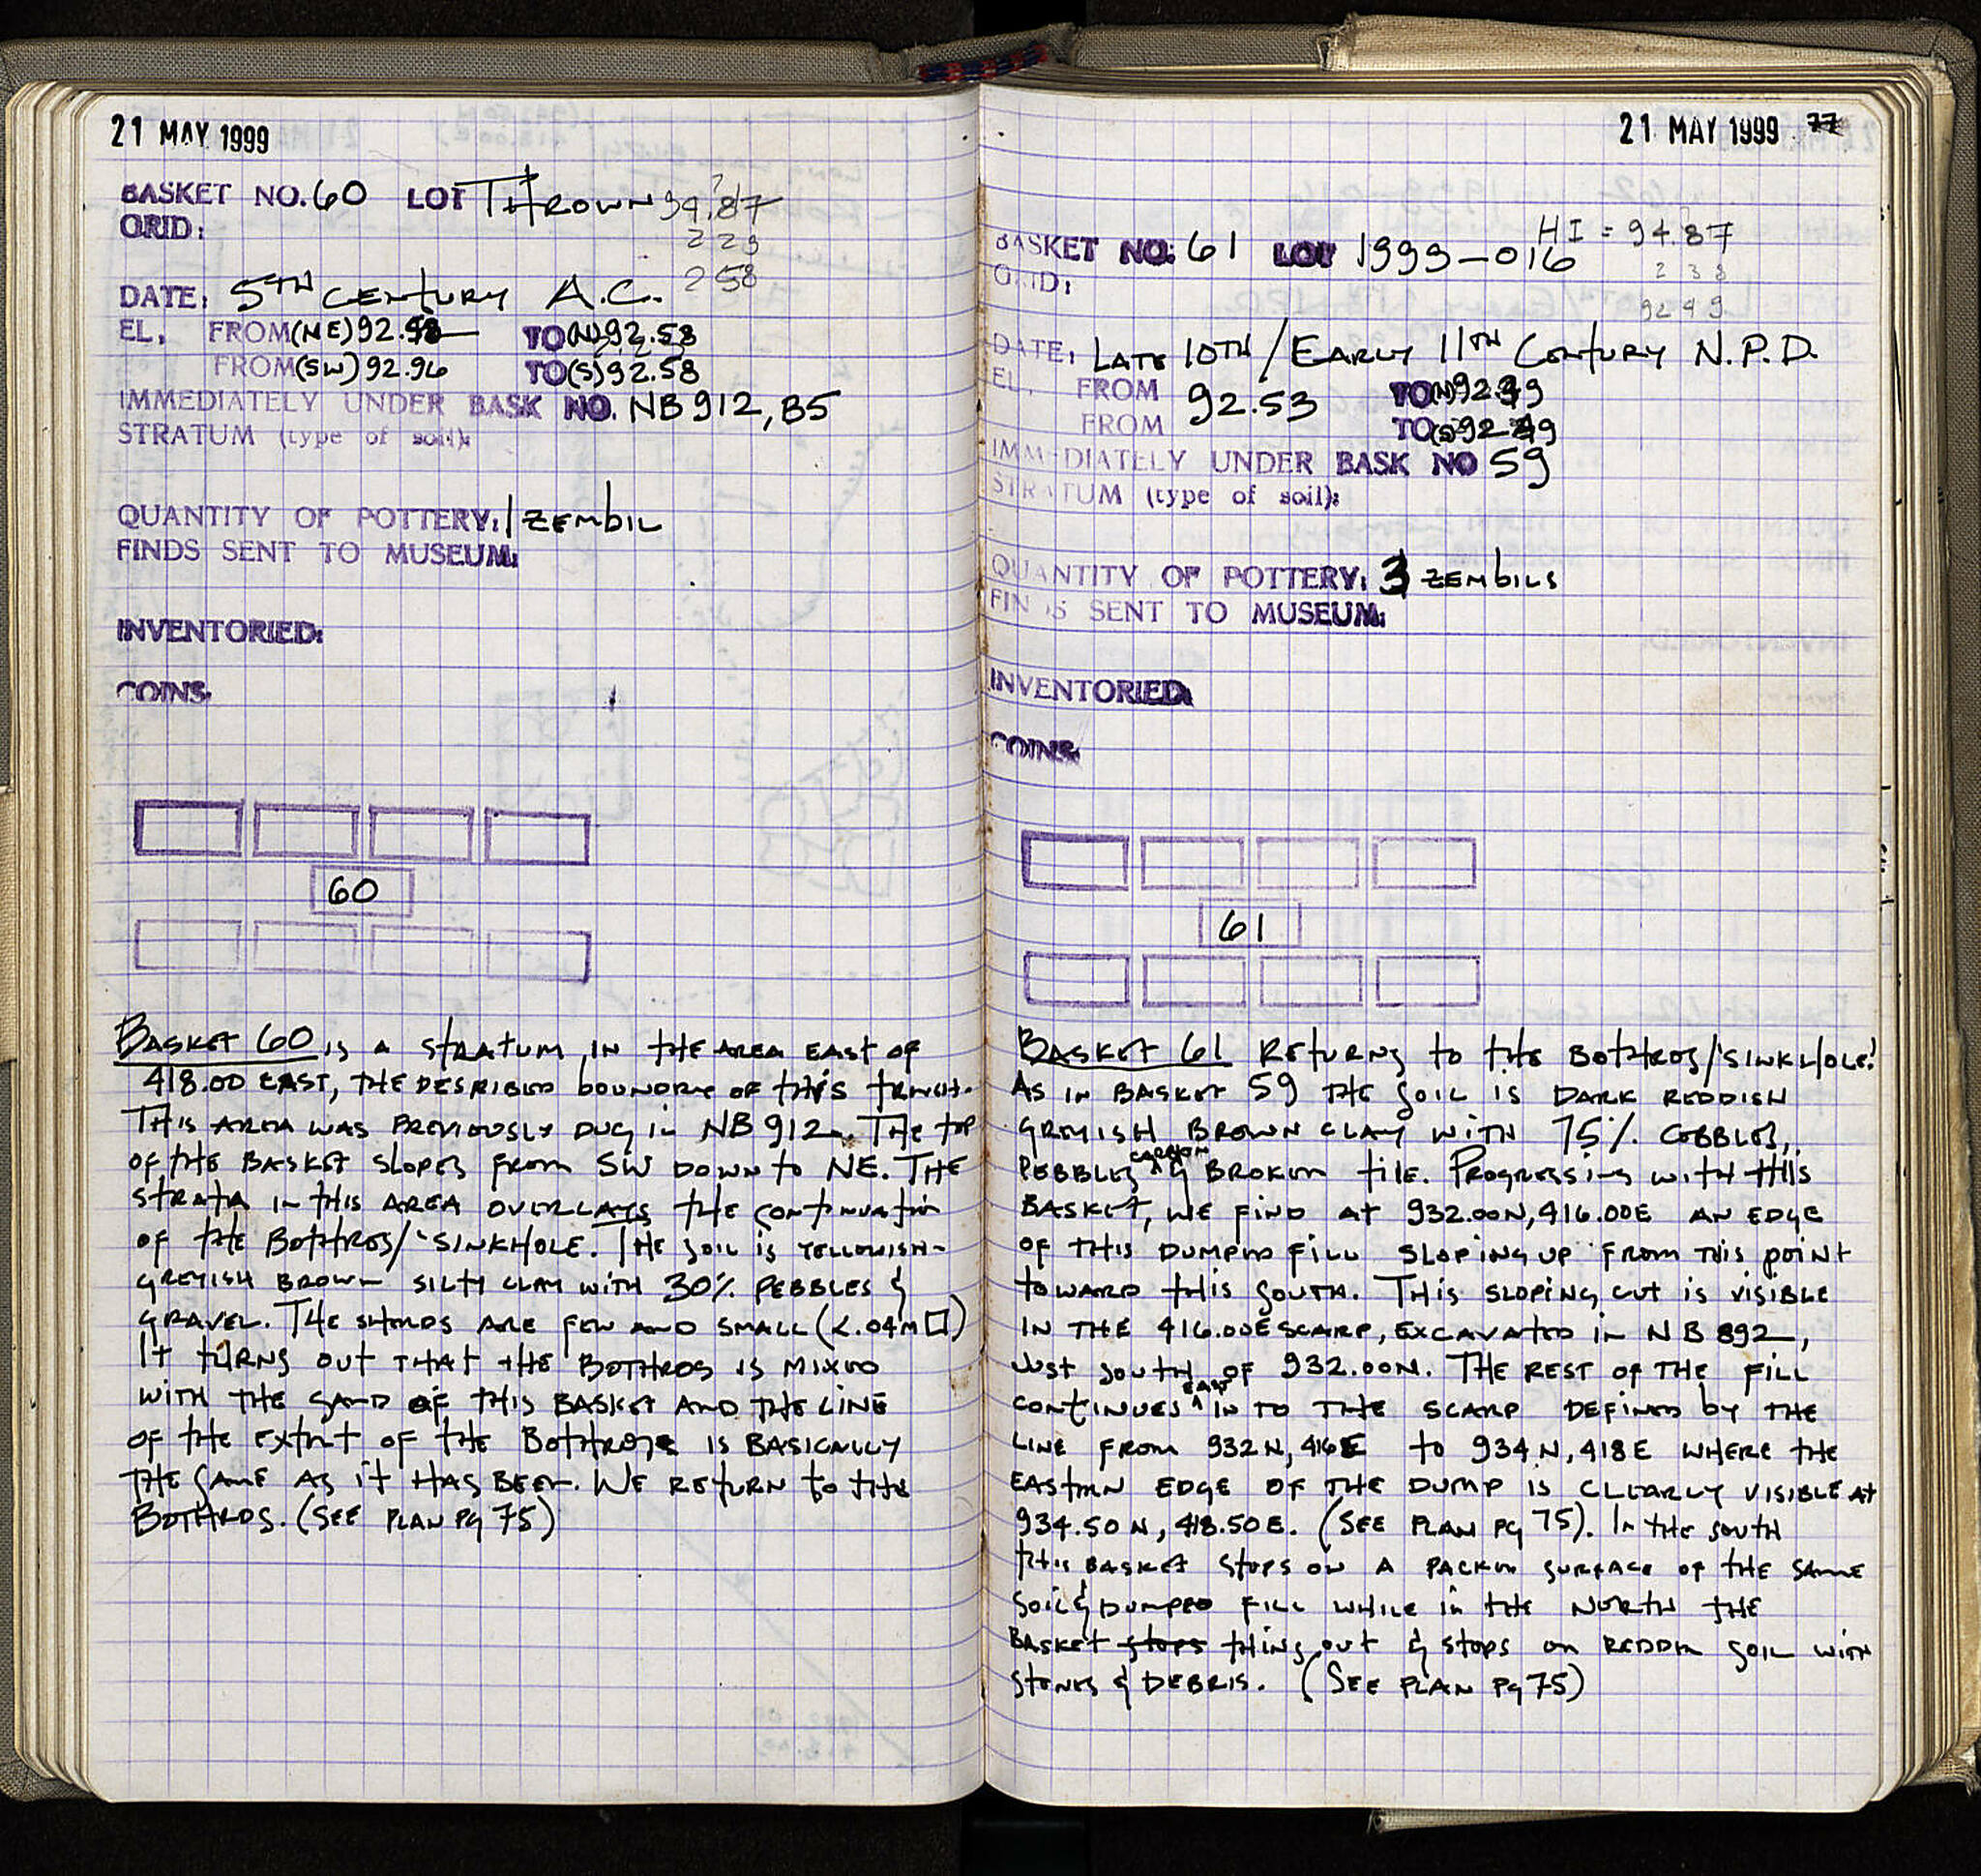 21 MAY 1999
BASKET NO. 60 LOT THROWN 94.87
GRID: 229
258
DATE: 5TH CENTURY A.C.
EL. FROM (NE) 92.58 TO (N) 92.58
FROM (SW) 92.96 TO (S) 92.58
IMMEDIATELY UNDER BASK NO. NB 912, B5
STRATUM (type of soil):
QUANTITY OF POTTERY: 1 ZEMBIL
FINDS SENT TO MUSEUM:
INVENTORIED:
COINS:
60
BASKET 60 IS A STRATUM IN THE AREA EAST OF
418.00 EAST, THE DESRIBED BOUNDRY OF THIS TRENCH.
THIS AREA WAS PREVIOUSLY DUG IN NB 912. THE TOP
OF THE BASKET SLOPES FROM SW DOWN TO NE. THE
STRATA IN THIS AREA OVERLAYS THE CONTINUATION
OF THE BOTHROS/'SINKHOLE. THE SOIL IS YELLOWISH-
GREYISH BROWN SILTY CLAY WITH 30% PEBBLES &
GRAVEL. THE SHERDS ARE FEW AND SMALL (<.04M □)
IT TURNS OUT THAT THE BOTHROS IS MIXED
WITH THE SAND OF THIS BASKET AND THE LINE
OF THE EXTENT OF THE BOTHROS IS BASICALLY
THE SAME AS IT HAS BEEN. WE RETURN TO THE
BOTHROS. (SEE PLAN PG 75)
21 MAY 1999 77
HI = 94.87
BASKET NO: 61 LOT 1999-016
238
GRID: 9249
DATE: LATE 10TH / EARLY 11TH CENTURY N.P.D.
EL. FROM 92.53 TO (N) 92.49
FROM TO (S) 92.49
IMMEDIATELY UNDER BASK NO 59
STRATUM (type of soil):
QUANTITY OF POTTERY: 3 ZEMBILS
FINDS SENT TO MUSEUM:
INVENTORIED:
COINS:
61
BASKET 61 RETURNS TO THE BOTHROS/'SINKHOLE'.
AS IN BASKET 59 THE SOIL IS DARK REDDISH
GREYISH BROWN CLAY WITH 75% COBBLES,
PEBBLES CARBON & BROKEN TILE. PROGRESSING WITH THIS
BASKET, WE FIND AT 932.00N, 416.00E AN EDGE
OF THIS DUMPED FILL SLOPING UP FROM THIS POINT
TOWARD THIS SOUTH. THIS SLOPING CUT IS VISIBLE
IN THE 416.00E SCARP, EXCAVATED IN NB 892,
JUST SOUTH OF 932.00N. THE REST OF THE FILL
CONTINUES EAST IN TO THE SCARP DEFINED BY THE
LINE FROM 932N, 416E TO 934N, 418E WHERE THE
EASTERN EDGE OF THE DUMP IS CLEARLY VISIBLE AT
934.50N, 418.50E. (SEE PLAN PG 75). IN THE SOUTH
THIS BASKET STOPS ON A PACKED SURFACE OF THE SAME
SOIL & DUMPED FILL WHILE IN THE NORTH THE
BASKET stops THINS OUT & STOPS ON REDDER SOIL WITH
STONES & DEBRIS. (SEE PLAN PG 75)